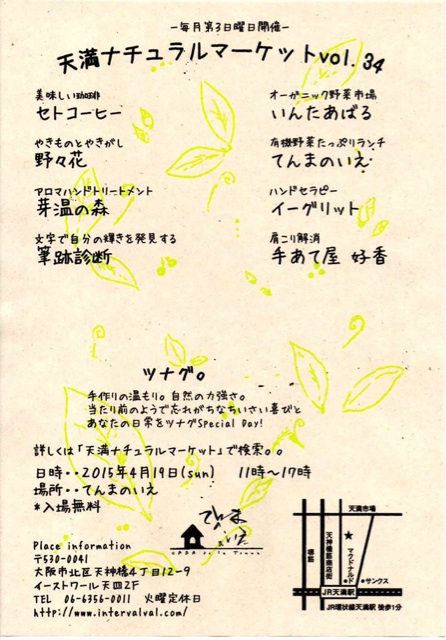 －毎月第3日曜日開催－
天満ナチュラルマーケットvol.34
美味しい珈琲
セトコーヒー
やきものとやきがし
野々花
アロマハンドトリートメント
芽温の森
文字で自分の輝きを発見する
筆跡診断
オーガニック野菜市場
いんたあばる
有機野菜たっぷりランチ
てんまのいえ
ハンドセラピー
イーグリット
肩こり解消
手あて屋 好香
ツナグ。
手作りの温もり。自然の力強さ。
当たり前のようで忘れがちなちいさい喜びと
あなたの日常をツナグSpecial Day!
詳しくは「天満ナチュラルマーケット」で検索。。
日時・・2015年4月19日(sun) 11時～17時
場所・・てんまのいえ
*入場無料
てんま
のいえ
Place information
〒530-0041
大阪市北区天神橋4丁目12-9
イーストワール天四2F
TEL 06-6356-0011 火曜定休日
http://www.intervalval.com/
天満市場
堺筋
天神橋筋商店街
マクドナルド
サンクス
JR天満駅
JR環状線天満駅 徒歩1分